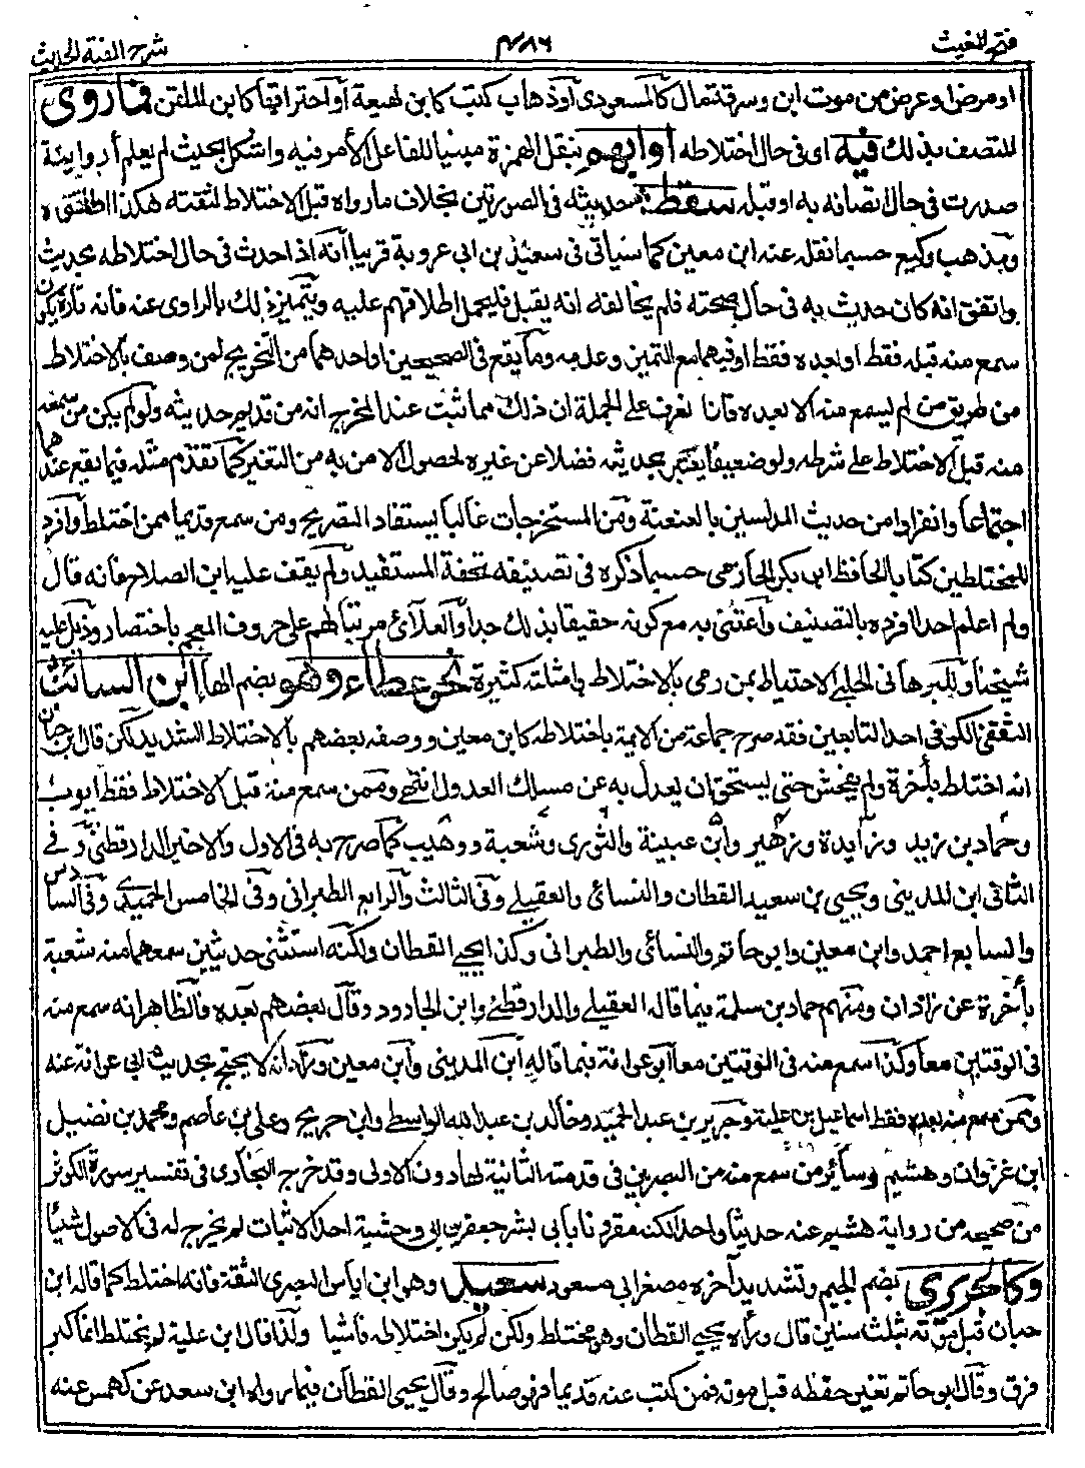 فتح المغيث ٤٨٦ شرح الفية الحديث
او مرض او عرض من موت ابن وسرقة مال كالمسعودي أو ذهاب كتب كابن لهيعة أو احتراقها كابن الملقن فما روى
المتصف بذلك فيه اى فى حال اختلاطه أو ابهم بنقل الهمزة مبنيا للفاعل الأمر فيه واشكل بحيث لم يعلم أروايته
صدرت فى حال اتصافه به او قبله سقط حديثه فى الصورتين بخلاف ما رواه قبل الاختلاط لثقته هكذا اطلقوه
ومذهب وكيع حسبما نقله عنه ابن معين كما سيأتى فى سعيد بن ابى عروبة قريبا أنه اذا حدث فى حال اختلاطه بحديث
واتفق انه كان حدث به فى حال صحته فلم يخالفه انه يقبل فليحمل اطلاقهم عليه ويتميز ذلك بالراوى عنه فانه تارة يكون
سمع منه قبله فقط او بعده فقط او فيهما مع التميز وعدمه وما يقع فى الصحيحين او احدهما من التخريج لمن وصف بالاختلاط
من طريق من لم يسمع منه الا بعده فانا نعرف على الجملة ان ذلك مما ثبت عند المخرج انه من قديم حديثه ولو لم يكن من سمعه
منه قبل الاختلاط على شرطه ولو ضعيفا يعتبر بحديثه فضلا عن غيره لحصول الامن به من التغير كما تقدم مثله فيما يقع عندهما
اجتماعا وانفرادا من حديث المدلسين بالعنعنة ومن المستخرجات غالبا يستفاد التصريح ومن سمع قديما ممن اختلط وافرد
للمختلطين كتابا الحافظ ابو بكر الحازمى حسبما ذكره فى تصنيفه تحفة المستفيد ولم يقف عليه ابن الصلاح فانه قال
ولم اعلم احدا افرده بالتصنيف واعتنى به مع كونه حقيقا بذلك جدا والعلائى مرتبا لهم على حروف المعجم باختصار وذيل عليه
شيخنا وللبرهان الحلبى الاغتباط بمن رمى بالاختلاط وامثلته كثيرة نحو عطاء وهو بضم الها ابن السائب
الثقفى الكوفى احد التابعين فقد صرح جماعة من الائمة باختلاطه كابن معين ووصفه بعضهم بالاختلاط الشديد لكن قال ابن حبان
انه اختلط بأخرة ولم يفحش حتى يستحق ان يعدل به عن مسلك العدول انتهى وممن سمع منه قبل الاختلاط فقط ايوب
وحماد بن زيد وزائدة وزهير وابن عيينة والثورى وشعبة ووهيب كما صرح به فى الاول والاخير الدارقطنى وفي
الثانى ابن المدينى ويحيى بن سعيد القطان والنسائى والعقيلي وفى الثالث والرابع الطبرانى وفى الخامس الحميدي وفى السادس
والسابع احمد وابن معين وابو حاتم والنسائى والطبرانى وكذا يحيى القطان ولكنه استثنى حديثين سمعهما منه شعبة
بأخرة عن زاذان ومنهم حماد بن سلمة فيما قاله العقيلي والدارقطنى وابن الجارود وقال بعضهم بعده والظاهر انه سمع منه
فى الوقتين معا وكذا سمع منه فى الوقتين معا ابو عوانة فيما قاله ابن المدينى وابن معين وزاد انه لا يحتج بحديث ابى عوانة عنه
وممن سمع منه بعده فقط اسماعيل بن علية وجرير بن عبد الحميد وخالد بن عبد الله الواسطى وابن جريج وعلى بن عاصم ومحمد بن فضيل
ابن غزوان وهشيم وسائر من سمع منه من البصريين فى قدمته الثانية لها دون الاولى وقد خرج البخارى فى تفسير سورة الكوثر
من صحيحه من رواية هشيم عنه حديثا واحدا لكنه مقرونا بابى بشر جعفر بن ابى وحشية احد الاثبات لم يخرج له فى الاصول شيئا
وكالجريرى بضم الجيم وتشديد آخره مصغرا ابى مسعود سعيد وهو ابن اياس البصرى الثقة فانه اختلط كما قاله ابن
حبان قبل موته بثلث سنين قال ورآه يحيى القطان وهو مختلط ولكن لم يكن اختلاطه فاشيا ولذا قال ابن علية لم يختلط انما كبر
فرق وقال ابو حاتم تغير حفظه قبل موته فمن كتب عنه قديما فهو صالح وقال يحيى القطان فيما رواه ابن سعد عن كهمس عنه